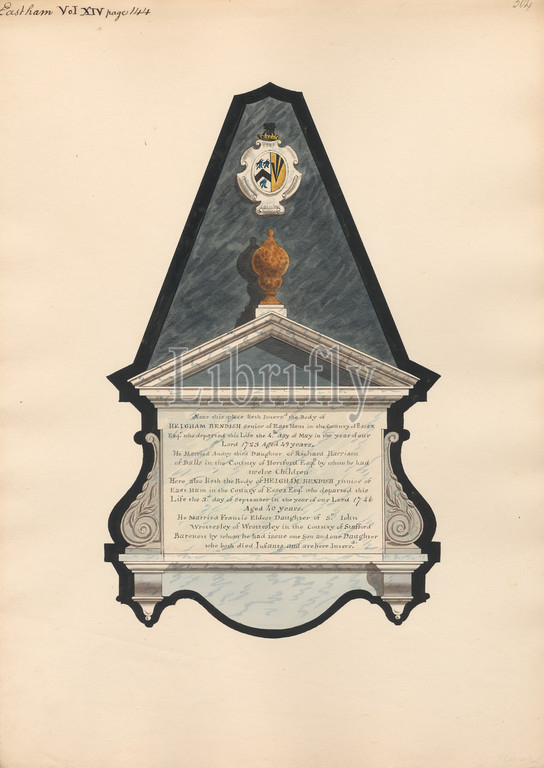 Eastham Vol XIV page 144
304
Librifly
Near this place lieth Interr'd the Body of
HELGHAM BENDISH senior of East Ham in the County of Essex
Esqr. who departed this Life the 4th day of May in the year of our
Lord 1723 Aged 49 years.
He Married Anage third Daughter of Richard Harrison
of Balls in the County of Hertford Esqr. by whom he had
twelve Children
Here also lieth the Body of HELGHAM BENDISH junior of
East Ham in the County of Essex Esqr. who departed this
Life the 3d. day of September in the year of our Lord 1746
Aged 40 years.
He Married Francis Eldest Daughter of Sr. John
Wrottesley of Wrottesley in the County of Stafford
Baronett by whom he had issue one Son and one Daughter
who both died Infants and are here Interr'd.